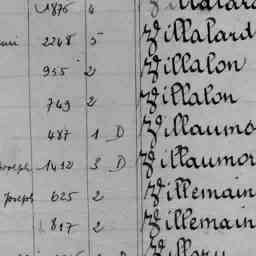 1876 4
2248 5 Villalard
955 2 Villalon
749 2 Villalon
487 1 D Villaumo
1412 3 D Villaumo
Joseph 625 2 Villemain
817 2 Villemain